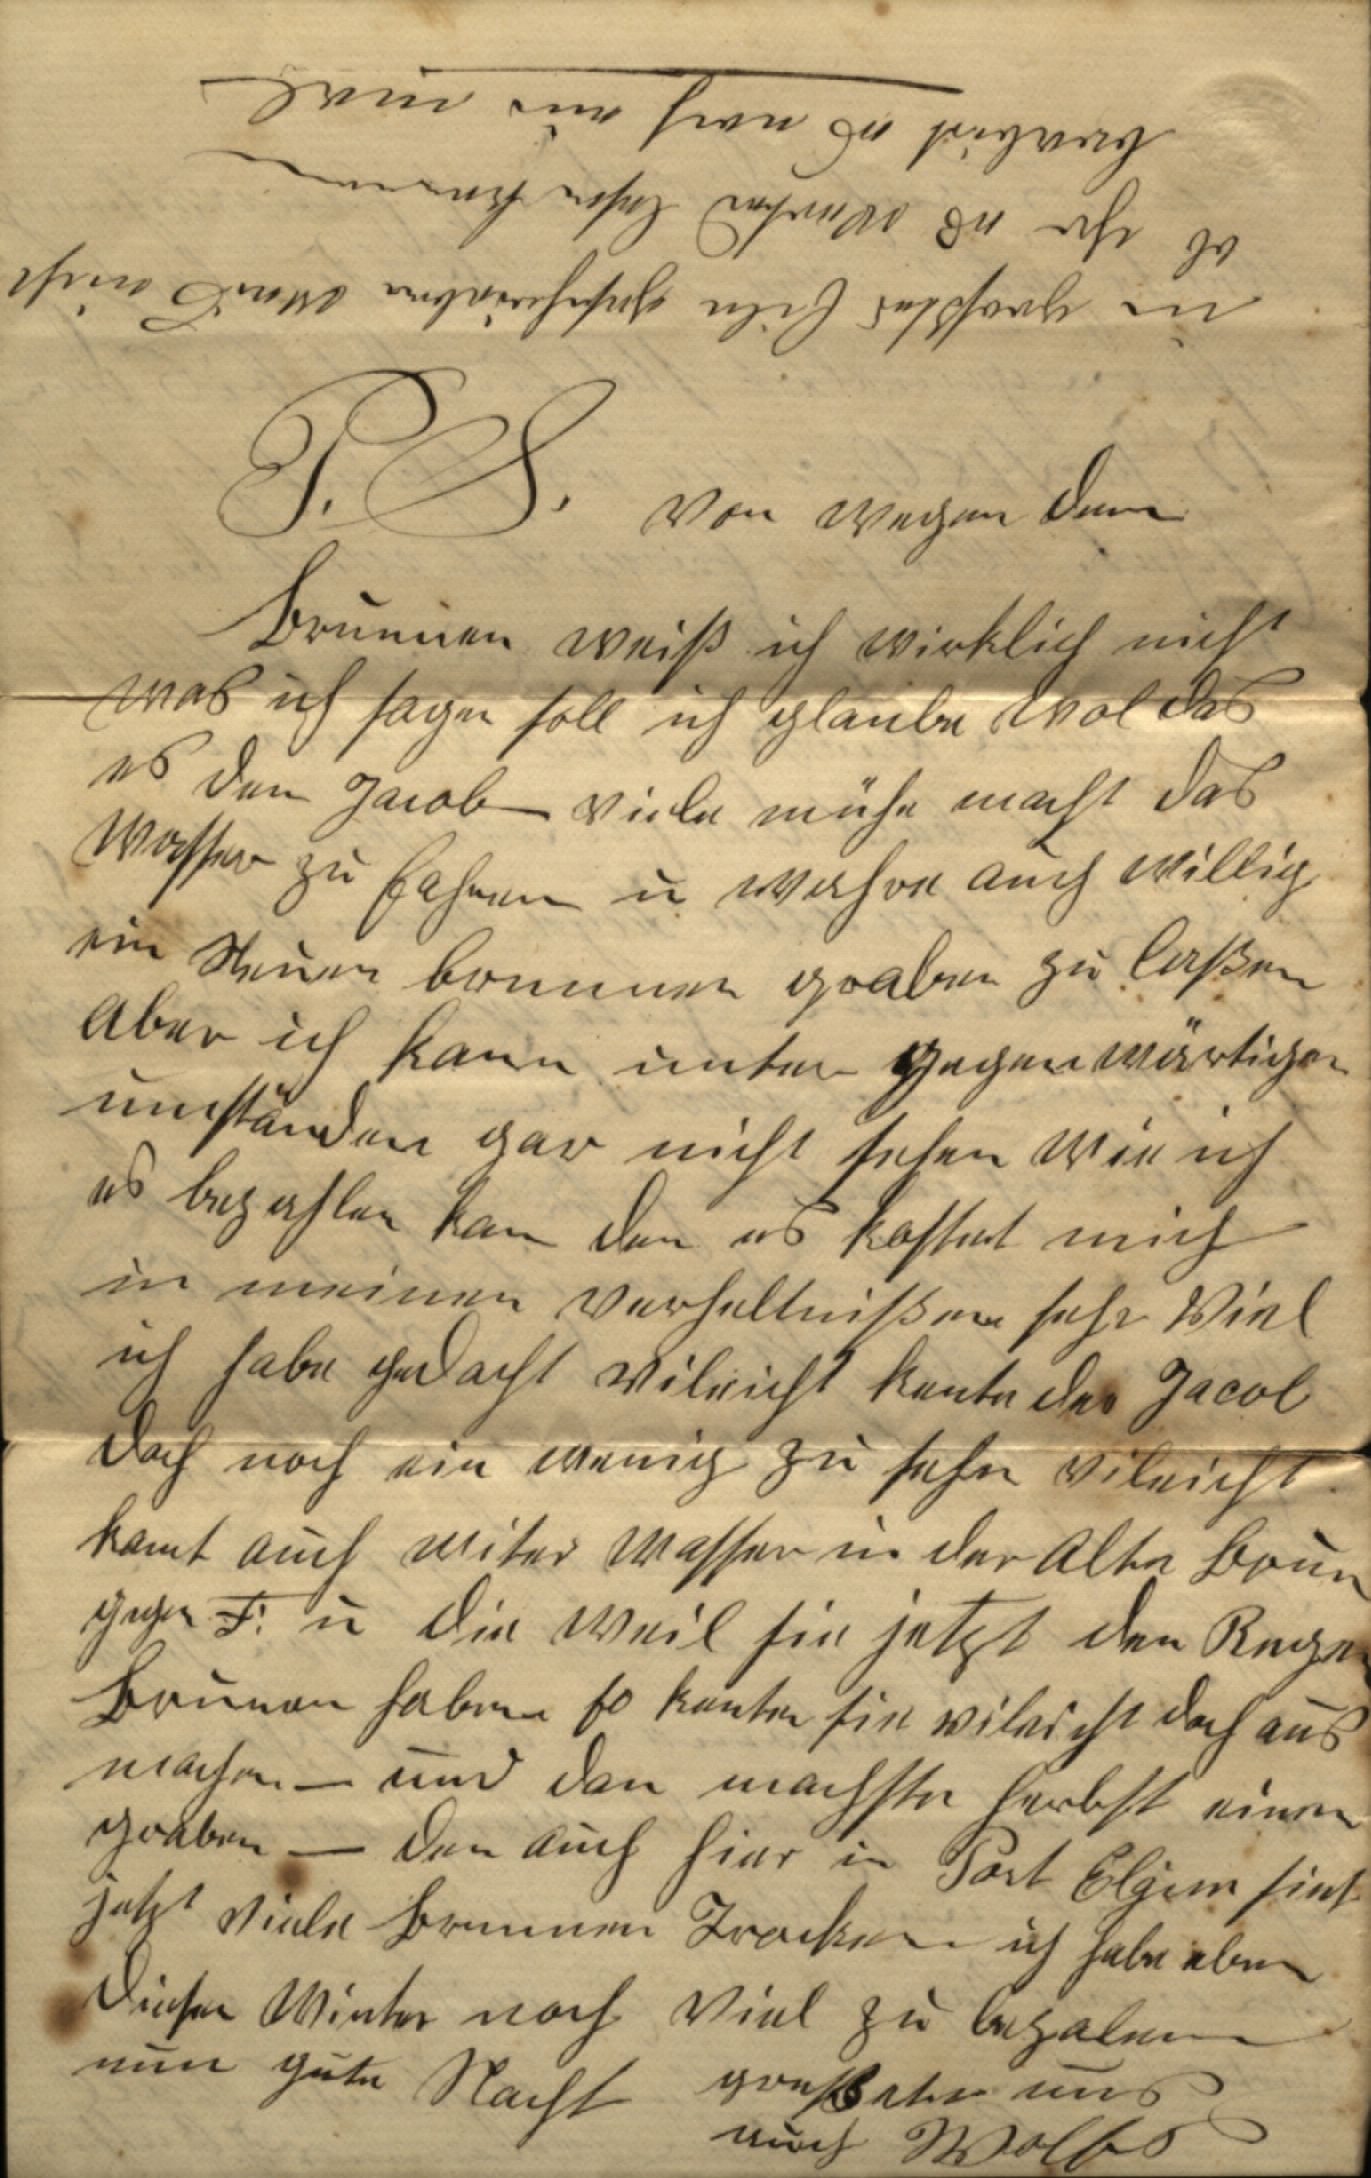 in großter Eile geschrieben Ward nicht
ob ihr es werdet lesen kennen
brobirt es noch ein mal
P. S. von wegen dem
Brunnen weiß ich wirklich nicht
was ich sagen soll ich glaube wol das
es dem Jacob viele mühe macht das
Wasser zu fahren u währe auch willig
ein Neuen brunnen graben zu laßen
Aber ich kann unter gegenwärtigen
umständen gar nicht sehen wie ich
es bezahlen kan den es kostet mich
in meinen verheltnißen sehr Viel
ich habe gedacht vileicht kente der Jacob
doch noch ein wenig zu sehn vileicht
komt auch witer Wasser in der Alte Brun
gegen F. u die weil sie jetzt den Regen
Brunnen haben so kenten sie vileicht doch aus
machen — und dan nachste Herbst einen
graben — den auch hier in Port Elgin sint
jetzt viele Brunnen Trocken ich habe eben
diesen Winter noch Viel zu bezalen
nun gute Nacht grüßet uns
auch Wolfs